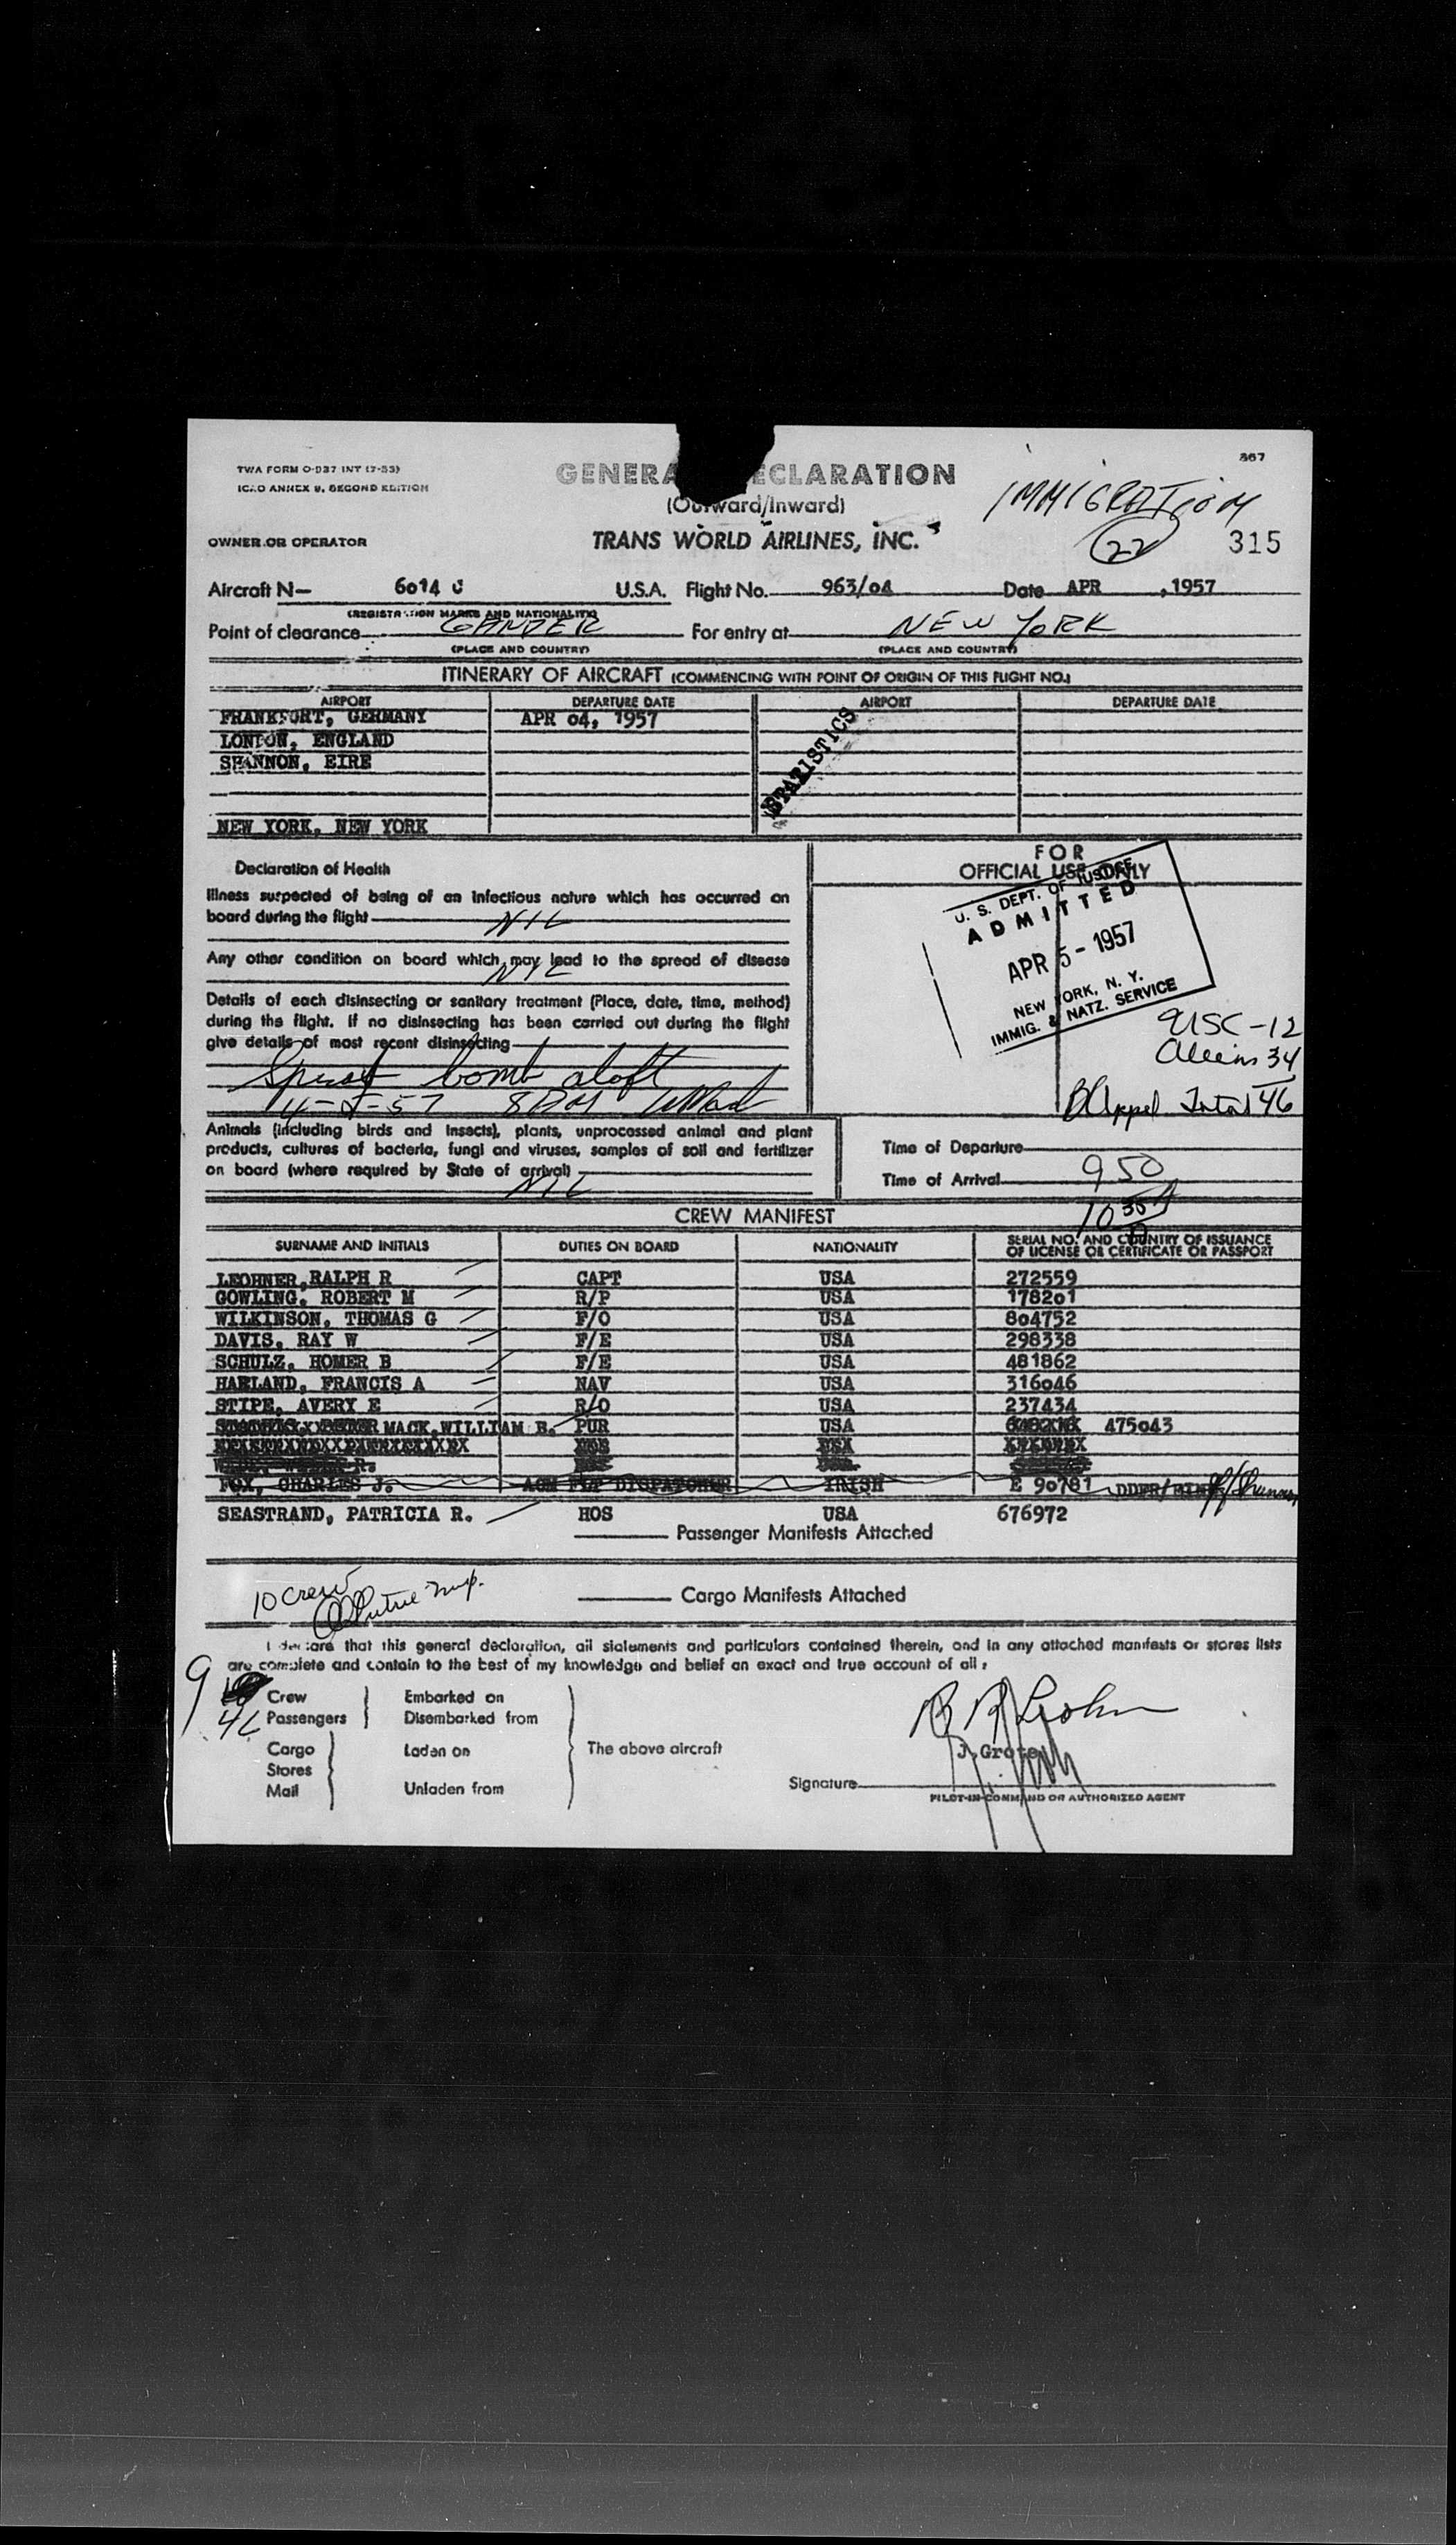 TWA FORM O-937 INT (7-53)
ICAO ANNEX 9, SECOND EDITION
GENERA ECLARATION
(Outward/Inward)
367
IMMIGRATION
22
315
OWNER OR OPERATOR
TRANS WORLD AIRLINES, INC.
Aircraft N— 6014 C U.S.A. Flight No. 963/04 Date APR , 1957
(REGISTRATION MARKS AND NATIONALITY)
Point of clearance GANDER For entry at NEW YORK
(PLACE AND COUNTRY) (PLACE AND COUNTRY)
ITINERARY OF AIRCRAFT (COMMENCING WITH POINT OF ORIGIN OF THIS FLIGHT NO.)
AIRPORT DEPARTURE DATE AIRPORT DEPARTURE DATE
FRANKFURT, GERMANY APR 04, 1957
LONDON, ENGLAND
SHANNON, EIRE
STATISTICS
NEW YORK, NEW YORK
Declaration of Health
Illness suspected of being of an infectious nature which has occurred on
board during the flight NIL
Any other condition on board which may lead to the spread of disease
NIL
Details of each disinsecting or sanitary treatment (Place, date, time, method)
during the flight. If no disinsecting has been carried out during the flight
give details of most recent disinsecting
bomb aloft
8 PM
FOR
OFFICIAL USE ONLY
U. S. DEPT. OF JUSTICE
ADMITTED
APR 5 - 1957
NEW YORK, N. Y.
IMMIG. & NATZ. SERVICE
USC - 12
Aliens 34
B Appel Total 46
Animals (including birds and insects), plants, unprocessed animal and plant
products, cultures of bacteria, fungi and viruses, samples of soil and fertilizer
on board (where required by State of arrival)
NIL
Time of Departure
Time of Arrival 950
CREW MANIFEST
SURNAME AND INITIALS DUTIES ON BOARD NATIONALITY SERIAL NO. AND COUNTRY OF ISSUANCE
OF LICENSE OR CERTIFICATE OR PASSPORT
LEOHNER, RALPH R CAPT USA 272559
GOWLING, ROBERT M R/P USA 178201
WILKINSON, THOMAS G F/O USA 804752
DAVIS, RAY W F/E USA 298338
SCHULZ, HOMER B F/E USA 481862
HARLAND, FRANCIS A NAV USA 316046
STIPE, AVERY E R/O USA 237434
MACK, WILLIAM B. PUR USA 475043
FOX, CHARLES J. ACM FLT DISPATCHER IRISH E 90781
SEASTRAND, PATRICIA R. HOS USA 676972
Passenger Manifests Attached
10 crew
Cargo Manifests Attached
I declare that this general declaration, all statements and particulars contained therein, and in any attached manifests or stores lists
are complete and contain to the best of my knowledge and belief an exact and true account of all:
9 Crew Embarked on
Passengers Disembarked from
Cargo Laden on The above aircraft
Stores
Mail Unladen from
J. Grote
Signature
PILOT-IN-COMMAND OR AUTHORIZED AGENT